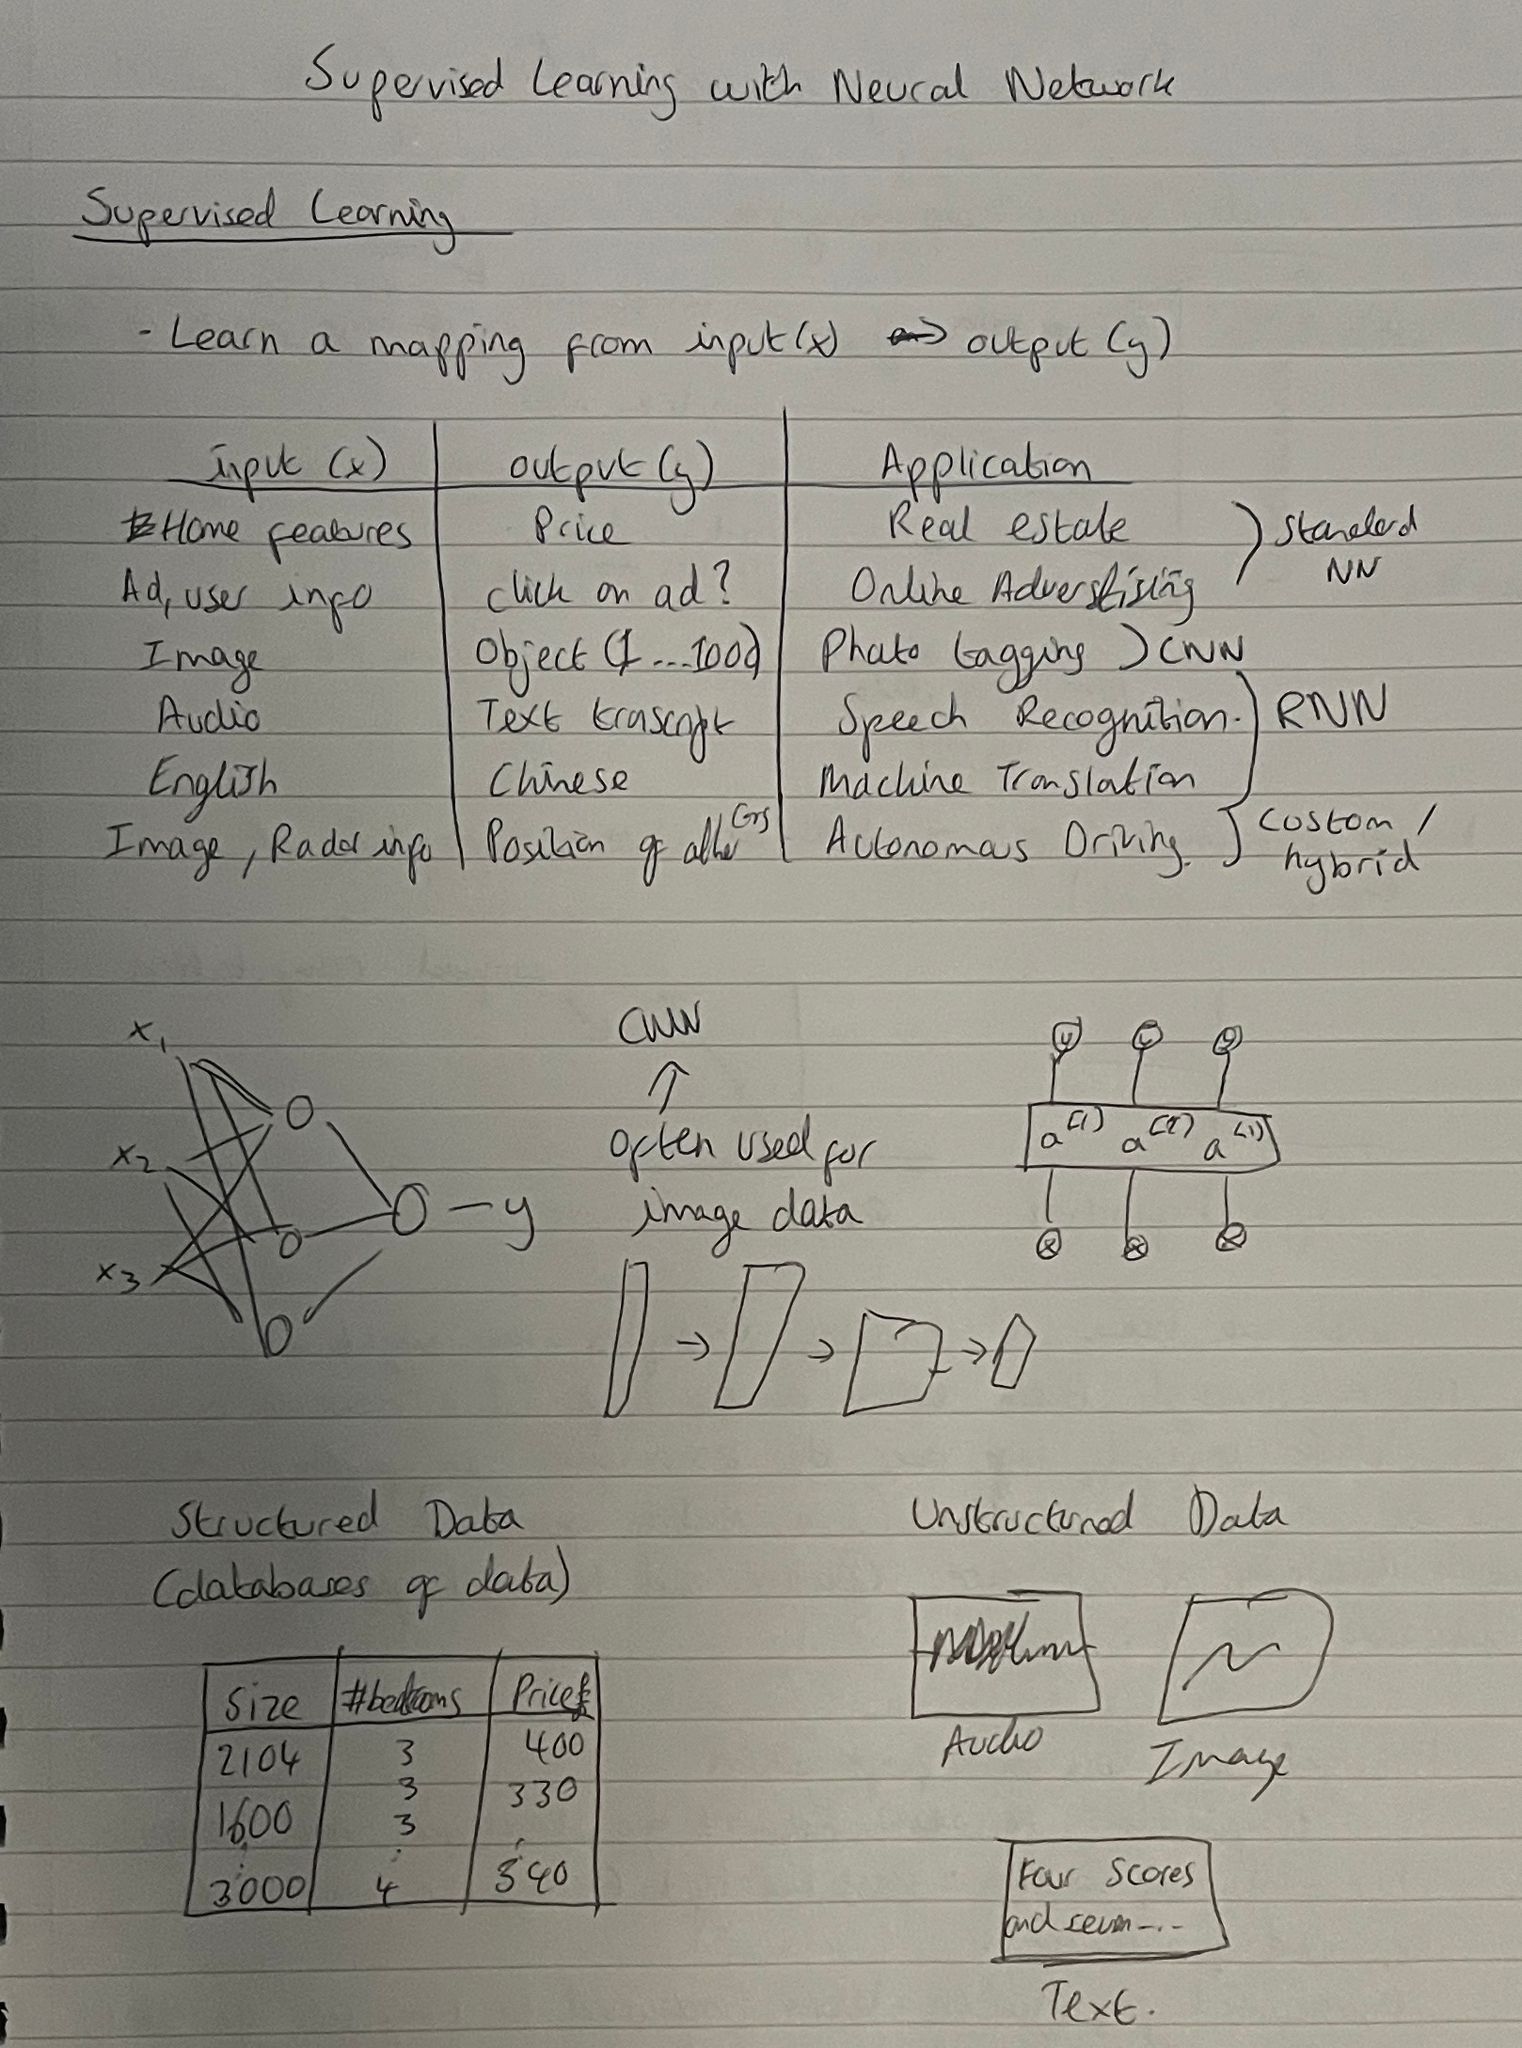 Supervised Learning with Neural Network
Supervised Learning
- Learn a mapping from input (x) → output (y)
input (x) output (y) Application
Home features Price Real estate ) Standerd NN
Ad, user info click on ad? Online Adverstising
Image Object (1 ... 1000) Photo tagging ) CNN
Audio Text trascript Speech Recognition. } RNN
English Chinese Machine Translation
Image, Radar info Position of other cars Autonomous Driving. } custom / hybrid
x1
x2
x3
y
CNN
↑
often used for
image data
y y y
a(1) a a(1)
x x x
Structured Data
(databases of data)
Size #bedrooms Price£
2104 3 400
3 330
1600 3
3000 4 540
Unstructured Data
Audio
Image
Four Scores
and seven ...
Text.